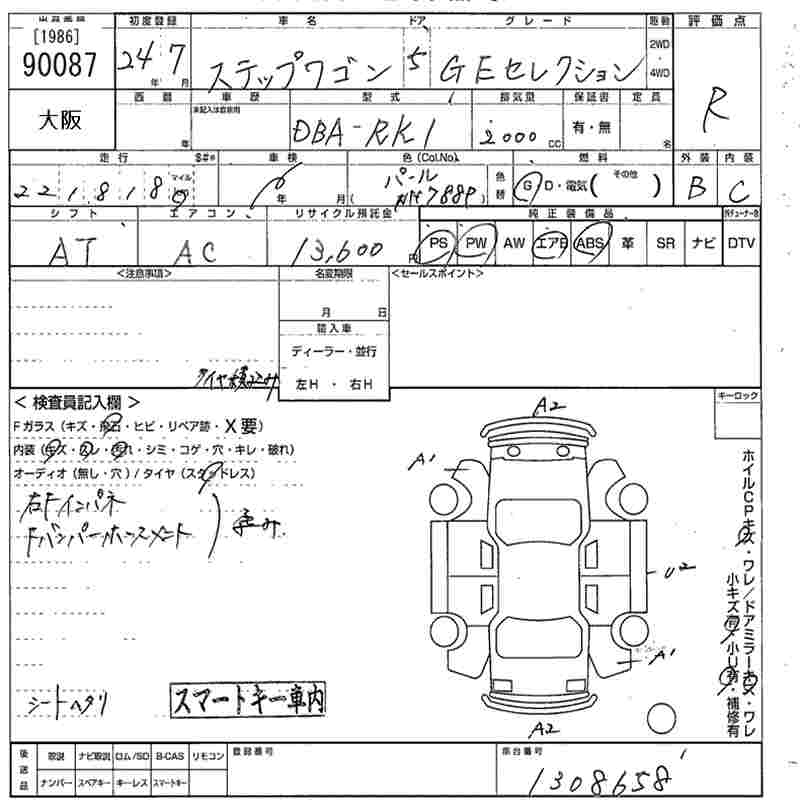 [1986]
90087
大阪
初度登録
24 年 7 月
車名
ステップワゴン
ドア
5
グレード
GEセレクション
駆動
2WD
4WD
評価点
R
西暦
年
車歴
未記入は自家用
型式
DBA-RK1
排気量
2000 cc
保証書
有・無
定員
名
走行
S#*
221818
マイル
車検
年 月(
色(Col.No)
パール
NH788P
色替
燃料
G D・電気( その他 )
外装
B
内装
C
シフト
AT
エアコン
AC
リサイクル預託金
13,600 円
純正装備品
PS PW AW エアB ABS 革 SR ナビ
DTV
<注意事項>
タイヤ積込み
名変期限
月 日
輸入車
ディーラー・並行
左H ・ 右H
<セールスポイント>
キーロック
< 検査員記入欄 >
Fガラス(キズ・飛石・ヒビ・リペア跡・X要)
内装(キズ・スレ・汚れ・シミ・コゲ・穴・キレ・破れ)
オーディオ(無し・穴)/タイヤ(スタッドレス)
右Fインパネ
Fバンパーホースメント
歪み
シートヘタリ
スマートキー車内
A2
A1
U2
A1
A2
ホイルCPキズ・ワレ/ドアミラーキズ・ワレ
小キズ有/小U有・補修有
後送品
取説 ナビ取説 ロム/SD B-CAS リモコン
ナンバー スペアキー キーレス スマートキー
登録番号
車台番号
1308658